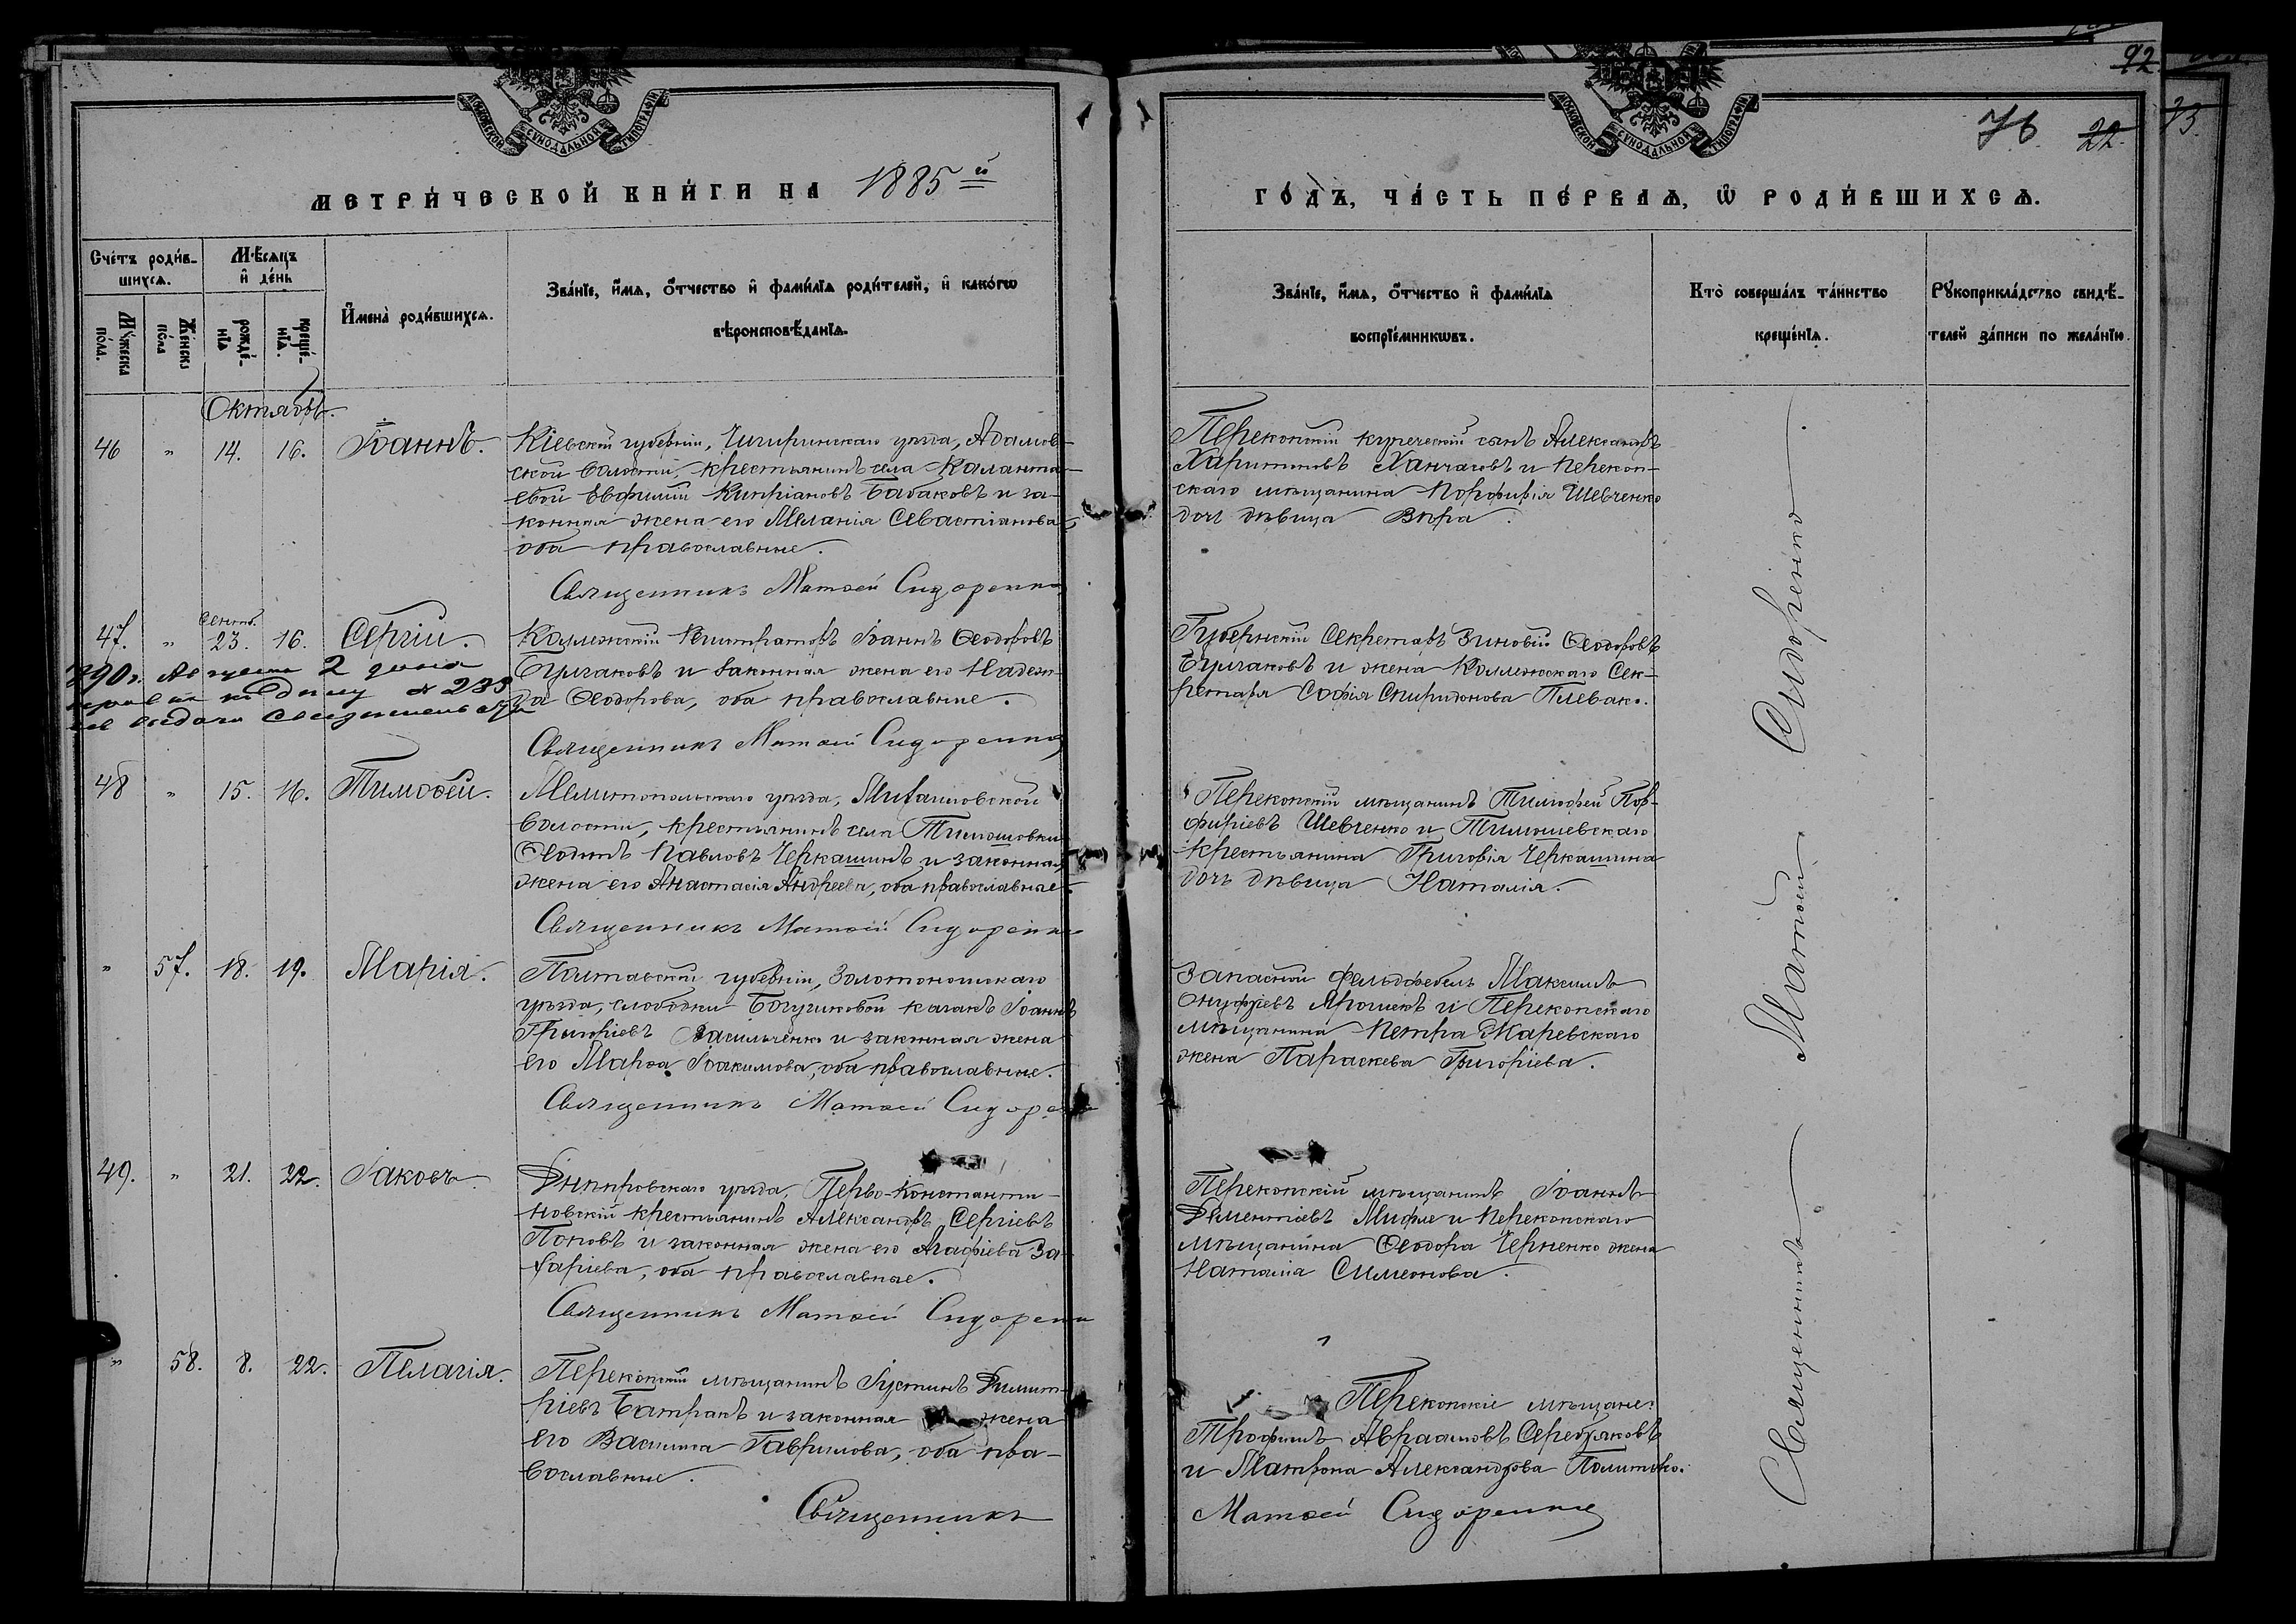 92
76 22.
73
МОСКОВСКОЙ СѴНОДАЛЬНОЙ ТИПОГРАФІИ
МОСКОВСКОЙ СѴНОДАЛЬНОЙ ТИПОГРАФІИ
МЕТРИ́ЧЕСКОЙ КНИ́ГИ НА 1885й
ГО́ДЪ, ЧА́СТЬ ПЕ́РВАѦ, Ѡ҆ РОДИ́ВШИХСѦ.
Сче́тъ роди́в-
шихсѧ.
Мѹ́жеска
по́ла.
Же́нска
по́ла
Мѣ́сѧцъ
и҆ де́нь
рожде́-
нїѧ
креще́-
нїѧ.
И҆мена̀ роди́вшихсѧ.
Зва́нїе, и҆́мѧ, ѻ҆́тчество и҆ фами́лїѧ роди́телей, и҆ како́гѡ
вѣроисповѣ́данїѧ.
Зва́нїе, и҆́мѧ, ѻ҆́тчество и҆ фами́лїѧ
воспрїе́мникѡвъ.
Кто̀ соверша́лъ та́инство
креще́нїѧ.
Рꙋкоприкла́дство свидѣ́-
телей за́писи по жела́нїю.
Октябрь.
46 " 14. 16. Іоаннъ. Кіевской губерніи, Чигиринскаго уѣзда, Адамов-
ской волости, крестьянинъ села Каланта-
евой Евфимій Кипріановъ Бабаковъ и за-
конная жена его Меланія Севастіанова,
оба православные.
Священникъ Матѳей Сидоренко
Перекопскій купеческій сынъ Александръ
Харитоновъ Ханчаговъ и Перекоп-
скаго мѣщанина Порфирія Шевченко
дочь дѣвица Вѣра.
47. " Сентяб. 23. 16. Сергій. Коллежскій Регистраторъ Іоаннъ Ѳеодоровъ
Булгаковъ и законная жена его Надеж-
да Ѳеодорова, оба православные.
Священникъ Матѳей Сидоренко
890 г. Августа 2 дня
№ 233
выдано свидетельство
Губернскій Секретарь Зиновій Ѳеодоровъ
Булгаковъ и жена Коллежскаго Сек-
ретаря Софія Спиридонова Плевако.
48 " 15. 16. Тимоѳей. Мелитопольскаго уѣзда, Михайловской
волости, крестьянинъ села Тимошовки
Ѳеодотъ Павловъ Черкашинъ и законная
жена его Анастасія Андреева, оба православные.
Священникъ Матѳей Сидоренко
Перекопскій мѣщанинъ Тимофей Пор-
фиріевъ Шевченко и Тимошевскаго
крестьянина Григорія Черкашина
дочь дѣвица Наталія.
" 57. 18. 19. Марія. Полтавской губерніи, Золотоношскаго
уѣзда, слободки Богушковой казакъ Іоаннъ
Григоріевъ Васильченко и законная жена
его Марѳа Іоакимова, оба православные.
Священникъ Матѳей Сидоре
Запасной Фельдфебель Максимъ
Онуфріевъ Ярошекъ и Перекопскаго
мѣщанина Петра Жаревскаго
жена Параскева Григоріева.
49. " 21. 22. Іаковъ. Днѣпровскаго уѣзда, Перво-Константи-
новскій крестьянинъ Александръ Сергіевъ
Поповъ и законная жена его Агафіева За-
харіева, оба православные.
Священникъ Матѳей Сидорен
Перекопскій мѣщанинъ Іоаннъ
Дементіевъ и Перекопскаго
мѣщанина Ѳеодора Черненко жена
Наталія Симеонова.
" 58. 8. 22. Пелагія. Перекопскій мѣщанинъ Іустинъ Димит-
ріевъ Батракъ и законная жена
его Васильса Гаврилова, оба пра-
вославные.
Перекопскіе мѣщане:
Трофимъ Авраамовъ Серебряковъ
и Матрона Александрова Политько.
Священникъ Матѳей Сидоренко
Священникъ Матѳей Сидоренко